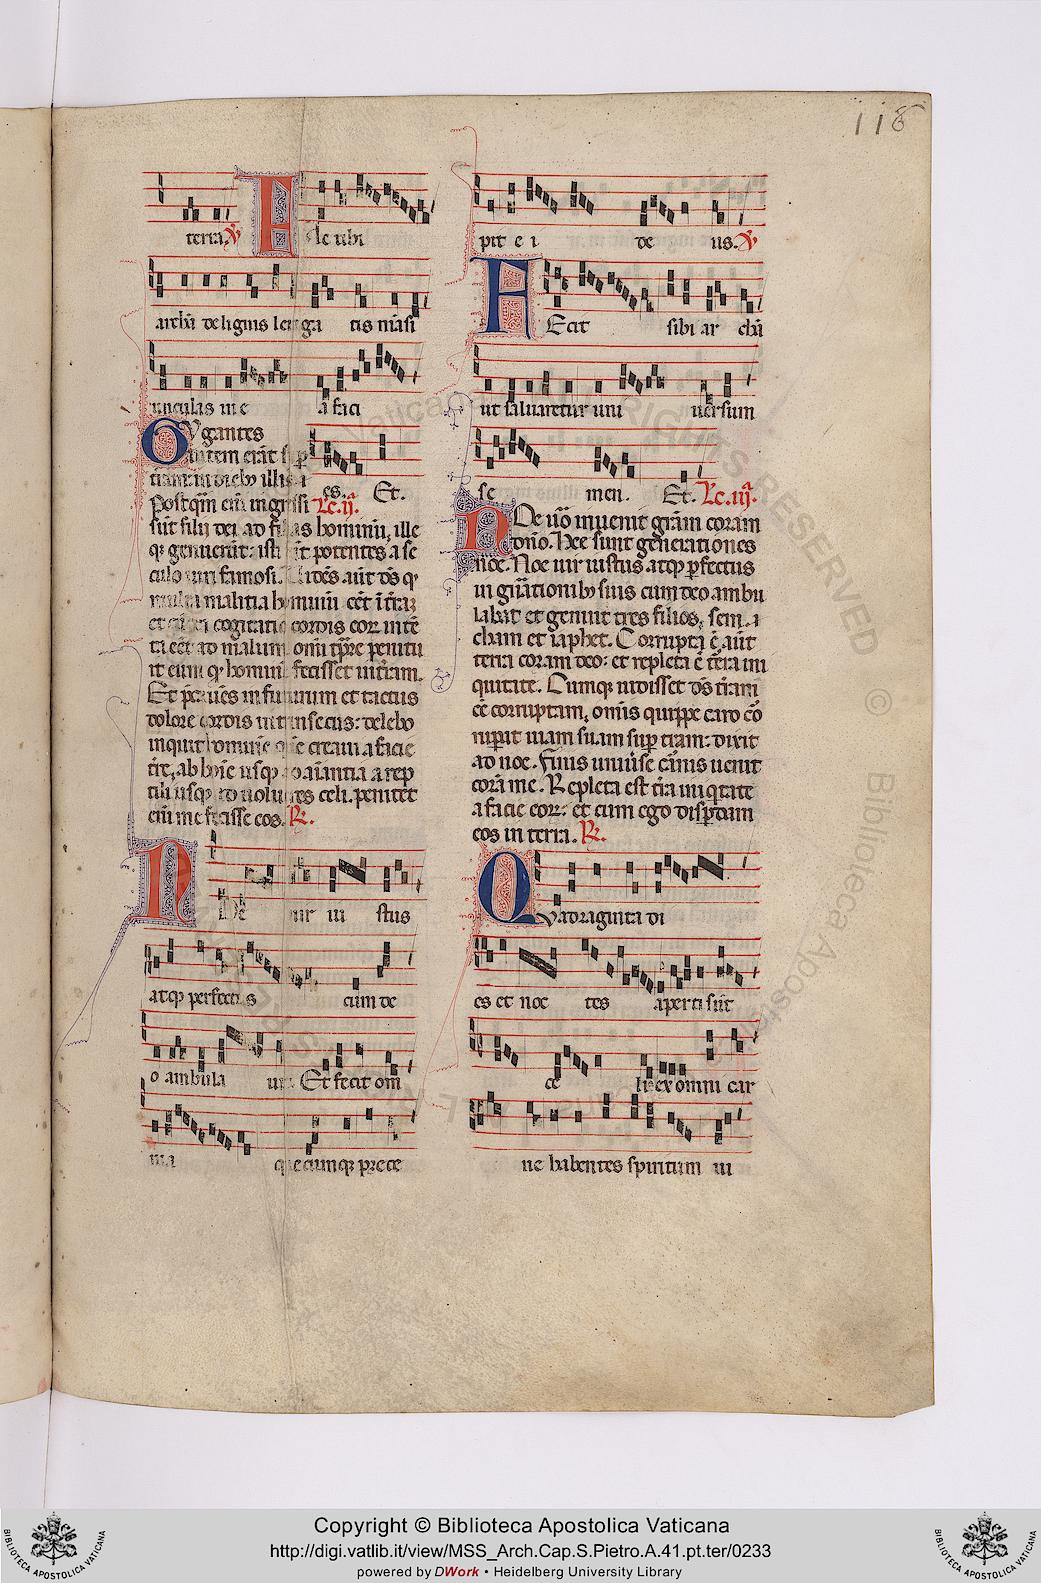 118
terra. V. Fac tibi
archã de lignis leuiga tis mãsi
unculas in ea faci
Gygantes
autem erãt sup
es. Et.
terram in dieb; illis
Postq̃m eñi ingressi Lc. ij.
sũt filij dei ad filias hominũ, ille
q; genuerũt: isti sũt potentes a se
culo uiri famosi. Uidẽs aũt dñs q
multa malitia hominũ eẽt ĩ tr̃a:
et cũcta cogitatio cordis eor intẽ
ta eẽt ad malum omi tp̃re penitu
it eum q hominẽ fecisset in tr̃am.
Et p̃cauẽs in futurum et tactus
dolore cordis intrinsecus: delebo
inquit hominẽ quẽ creaui a facie
tr̃e, ab hoĩe usq; ad aĩantia a rep
tili usq; ad uolucres celi. penitet
eñi me fecisse eos. R.
Noe uir iustus
atq; perfectus cum de
o ambula uit. Et fecit om
nia quecumq; prece
pit e i de us. V.
Fecit sibi ar chã
ut saluaretur uni uersum
se men. Et. Lc. iij.
Noe uo inuenit grãm coram
dño. Hee sunt generationes
noe. Noe uir iustus atq; p̱fectus
in gñationib; suis cum deo ambu
labat et genuit tres filios, sem.
cham et iaphet. Corrupta ẽ aũt
terra coram deo: et repleta ẽ tẽra ini
quitate. Cumq; uidisset dñs tr̃am
eẽ corruptam, omnis quippe caro cõ
ruperat uiam suam sup tr̃am: dixit
ad noe. Finis uniuerse carnis uenit
corã me. Repleta est tr̃a iniq̃tate
a facie eor: et cum ego disperdam
eos in terra. R.
Quadraginta di
es et noc tes aperti sũt
ce li et ex omni car
ne habentes spiritum ui
ALL RIGHTS RESERVED © Biblioteca Apostolica Vaticana
BIBLIOTECA APOSTOLICA VATICANA
Copyright © Biblioteca Apostolica Vaticana
http://digi.vatlib.it/view/MSS_Arch.Cap.S.Pietro.A.41.pt.ter/0233
powered by DWork • Heidelberg University Library
BIBLIOTECA APOSTOLICA VATICANA